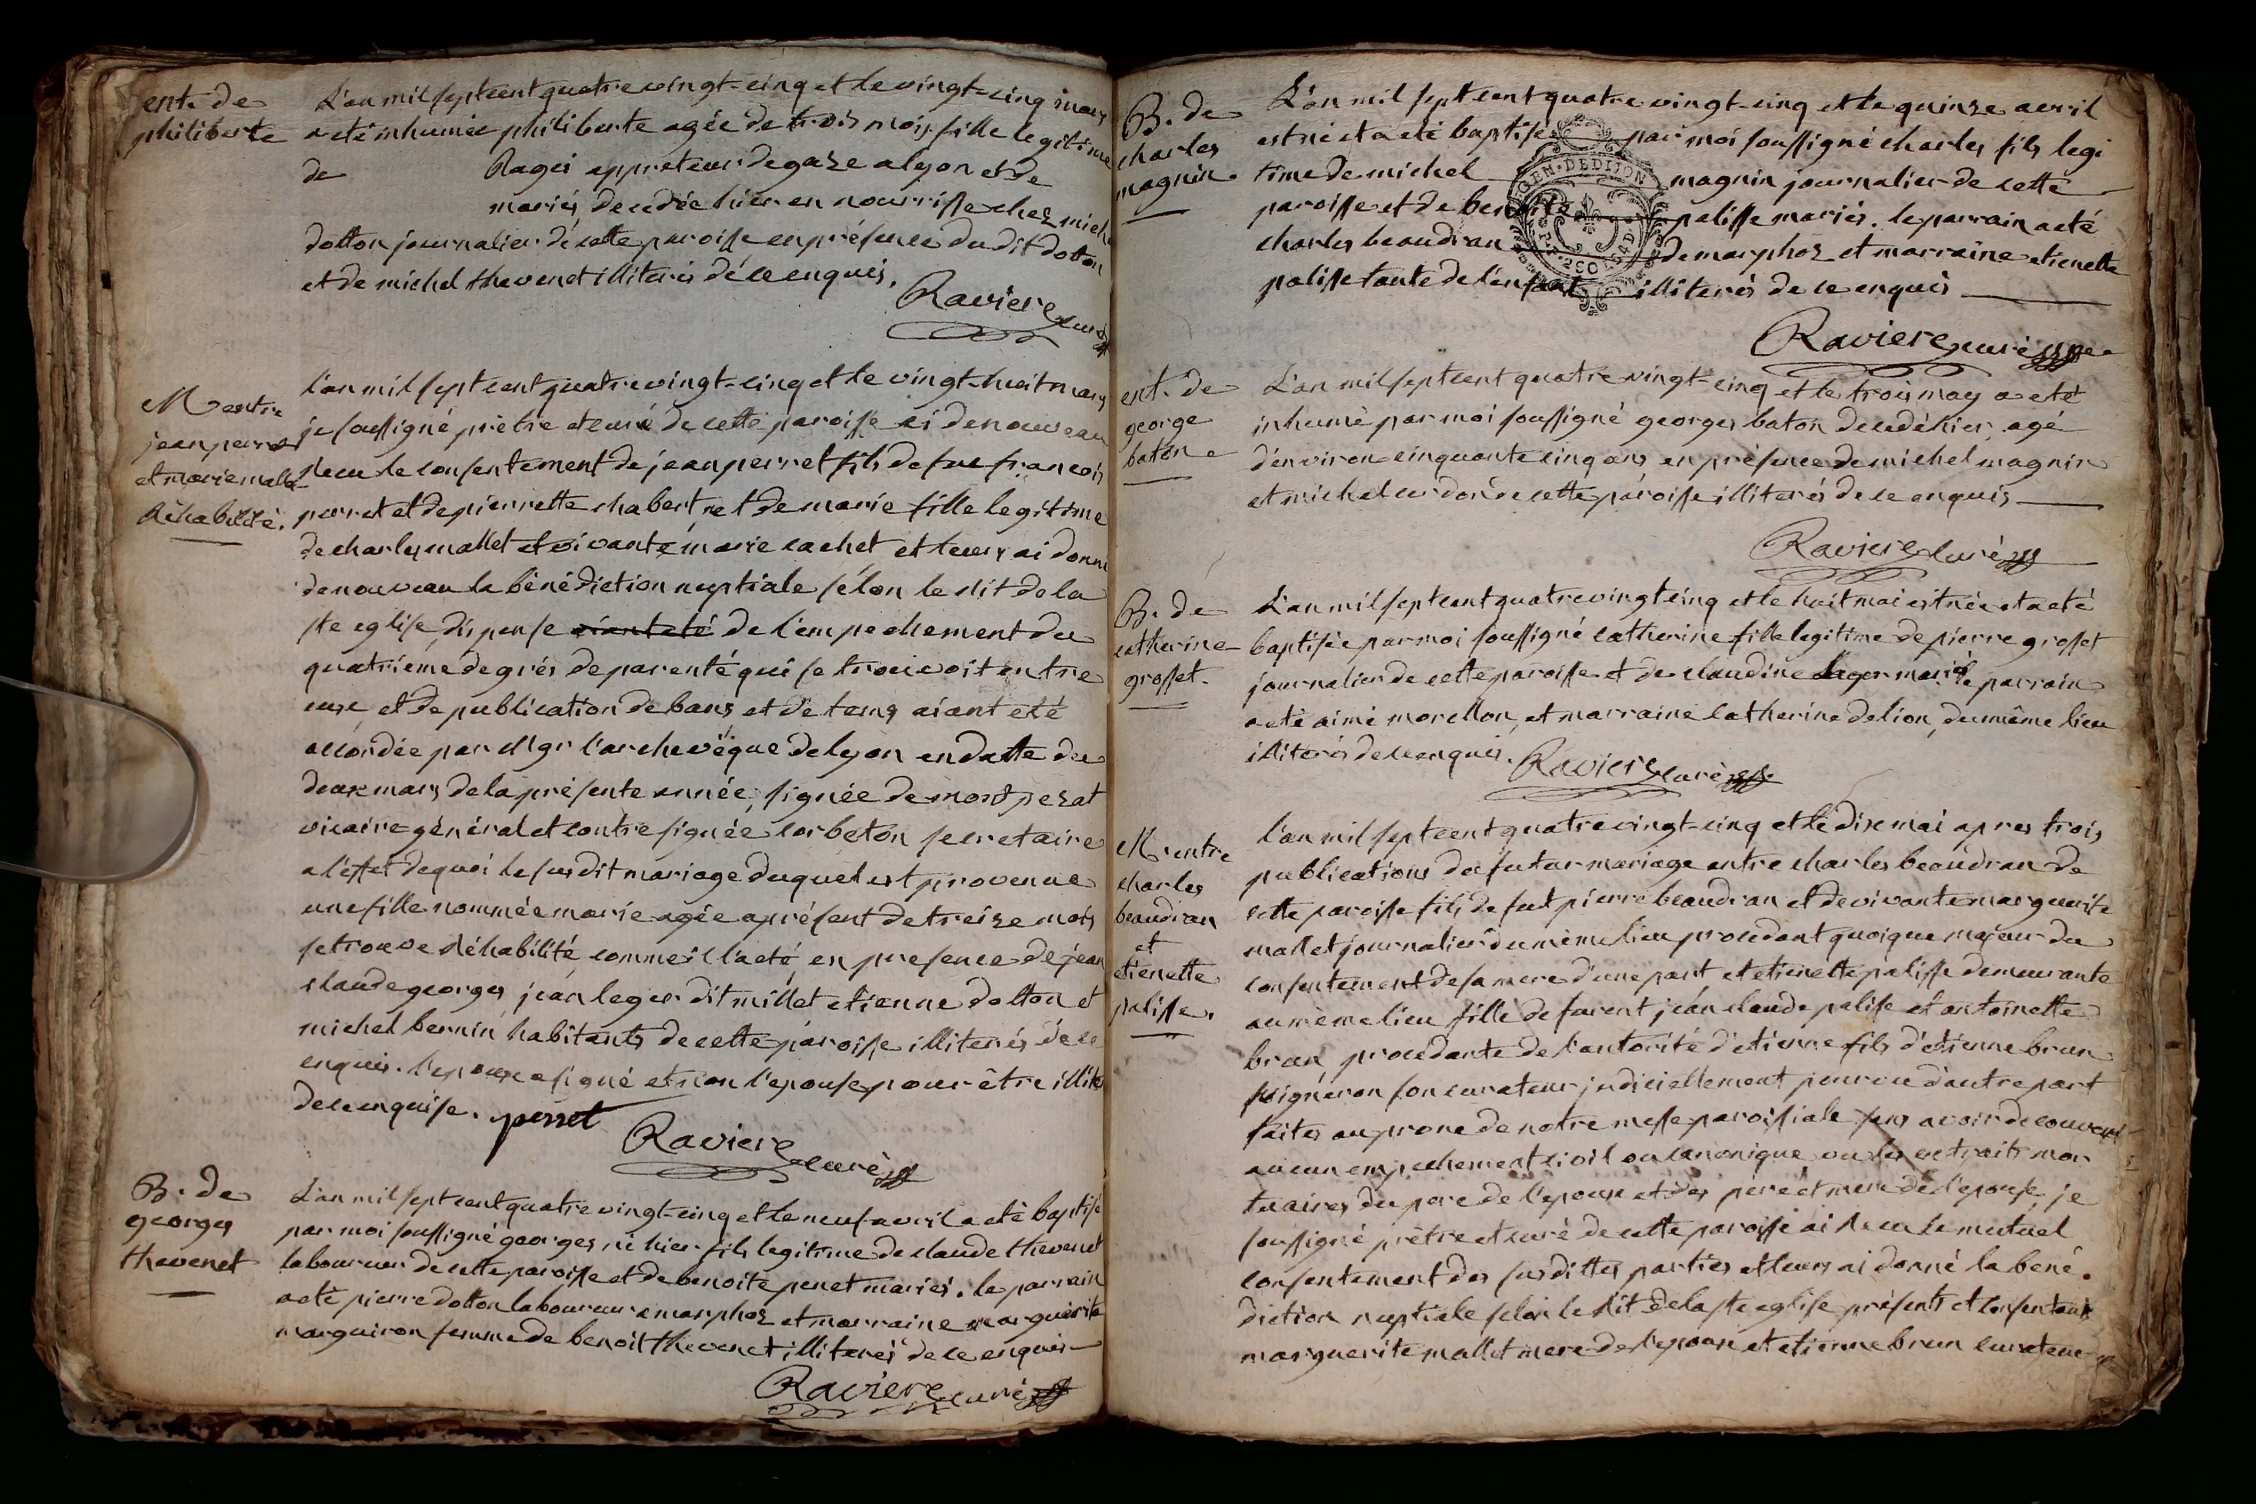 ent. de
philiberte
L'an mil sept cent quatre vingt-cinq et le vingt-cinq mars
a eté inhumée philiberte agée de trois mois fille legitime
de Ragei appreteur de gaze a lyon et de
mariés, decedée hier en nourrisse chez
dotton journalier de cette paroisse en présence du dit dotton
et de michel thevenet illiterés de ce enquis.
Raviere curé
M entre
jean perret
et marie mallet
Réhabilité.
l'an mil sept cent quatre vingt-cinq et le vingt-huit mars
je soussigné prêtre et curé de cette paroisse ai de nouveau
recu le consentement de jean perret fils de feu francois
perret et de pierrette chabert et de marie fille legitime
de charles mallet et vivante marie cachet et leurs ai donné
de nouveau la bénédiction nuptiale sélon le rit de la
ste eglise, dispense de l'empechement du
quatrieme degrés de parenté qui se trouvoit entre
eux et de publication de bans et de tems aiant eté
accordée par Mgr l'archevêque de lyon en datte du
deux mars de la présente année, signée de montpezat
vicaire général et contre signée corbeton secretaire
a l'effet de quoi le susdit mariage duquel est provenue
une fille nommée marie agée a présent de treize mois
se trouve réhabilité comme il l'a eté, en presence de jean
claude georges, jean leger dit millet etienne dotton et
michel bernin habitants de cette paroisse illiterés de ce
enquis. l'epoux a signé et non l'epouse pour être illite
de ce enquise. perret
Raviere curé
B. de
georges
thevenet
L'an mil sept cent quatre vingt-cinq et le neuf avril a eté baptisé
par moi soussigné georges né hier fils legitime de claude thevenet
laboureur de cette paroisse et de benoite penet mariés. le parrain
a eté pierre dotton laboureur a marphoz et marraine marguerite
marguiron femme de benoit thevenet illiterés de ce enquis
Raviere curé
B. de
charles
magnin.
L'an mil sept cent quatre vingt-cinq et le quinze avril
est né et a eté baptisé par moi soussigné charles fils legi
time de michel magnin journalier de cette
paroisse et de benoite palisse mariés. le parrain a eté
charles beaudran de marphoz et marraine etienette
palisse tante de l'enfant illiterés de ce enquis
GEN. DE DIJON
Raviere curé
ent. de
george
baton
L'an mil sept cent quatre vingt-cinq et le trois may a eté
inhumé par moi soussigné georges baton decedé hier agé
d'environ cinquante cinq ans en présence de michel magnin
et michel de cette paroisse illiterés de ce enquis
Raviere curé
B. de
catherine
grosset.
L'an mil sept cent quatre vingt cinq et le huit mai est née et a eté
baptisée par moi soussigné catherine fille legitime de pierre grosset
journalier de cette paroisse et de claudine mariés le parrain
a eté aimé morellon, et marraine catherine delion, du même lieu
illiterés de ce enquis. Raviere curé
M entre
charles
beaudran
et
etienette
palisse.
l'an mil sept cent quatre vingt-cinq et le dix mai apres trois
publications du futur mariage entre charles beaudran de
cette paroisse fils de feut pierre beaudran et de vivante marguerite
mallet journalier du même lieu procedant quoique majeur du
consentement de sa mere d'une part et etienette palisse demeurante
au même lieu fille de furent jean claude palisse et antoinette
brun procédante de l'autorité d'etienne fils d'etienne brun
vigneron son curateur judiciellement pourvu d'autre part
faites au prone de notre messe paroissiale sans avoir decouvert
aucun empechement civil ou canonique vu les extraits mor
tuaires du pere de l'epoux et des père et mere de l'epouse, je
soussigné prêtre et curé de cette paroisse ai recu le mutuel
consentement des susdittes parties et leurs ai donné la béné.
diction nuptiale selon le rit de la ste eglise présents et consentant
marguerite mallet mere de l'epoux et etienne brun curateur